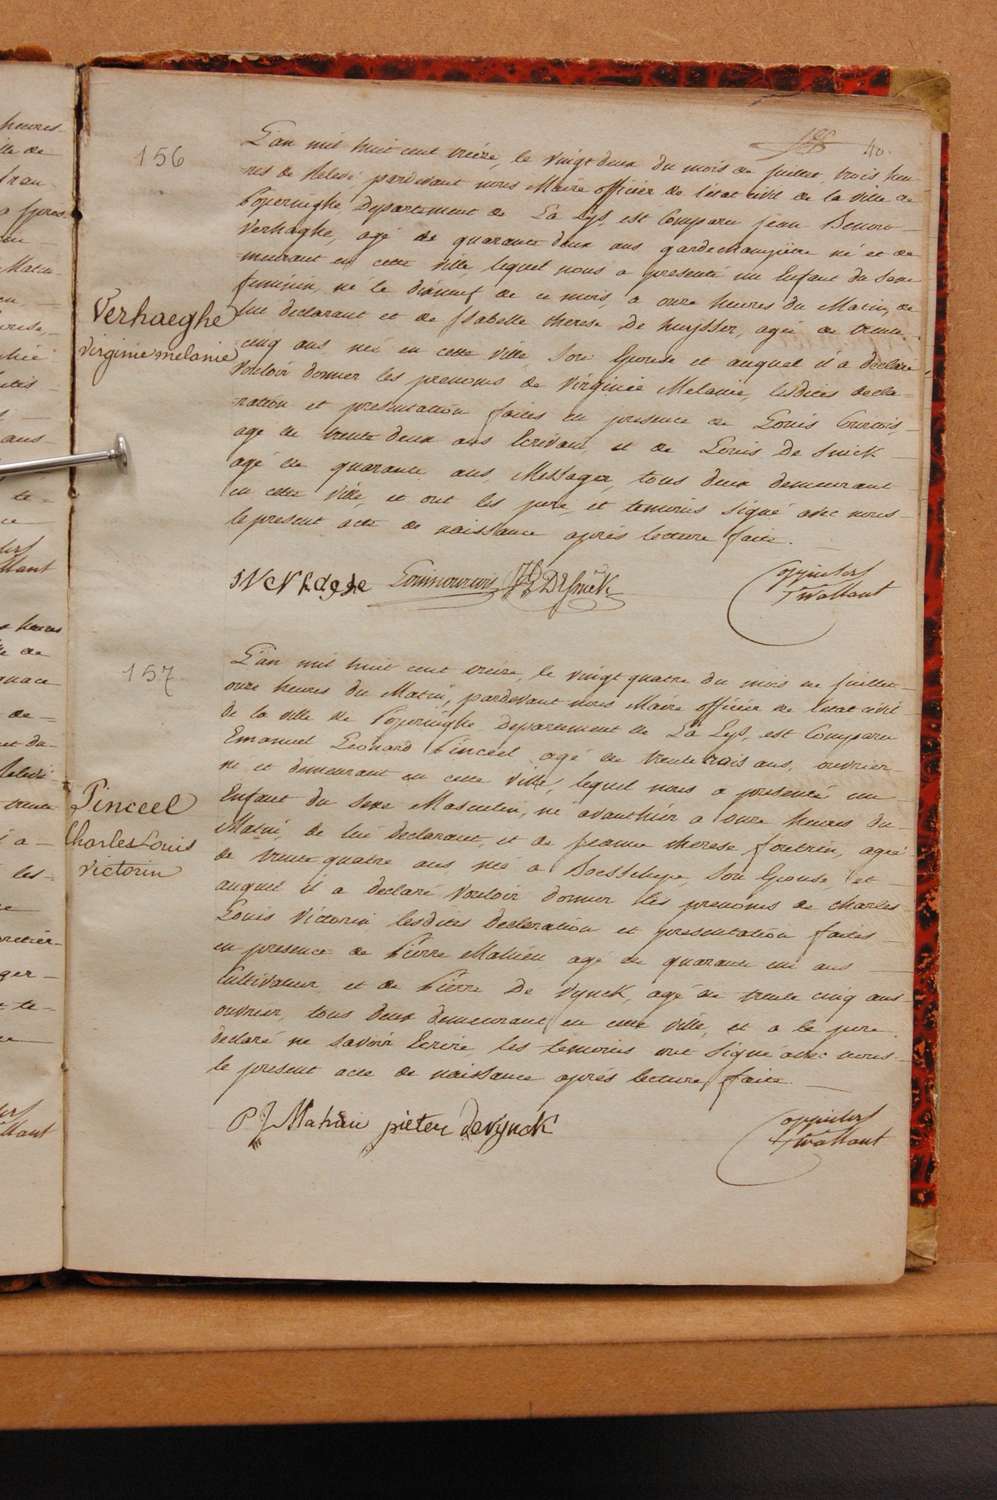 40.
156
L'an mil huit cent treize, le vingt deux du mois de Juillet, trois heu-
res de Relevé pardevant nous Maire officier de l'état civil de la ville de
Poperinghe, Departement de La Lys, est Comparu jean
Verhaghe, agé de quarante deux ans gardechampètre né et de
meurant en cette ville, lequel nous a presenté un Enfant du Sexe
feminin, né le dixneuf de ce mois, a onze heures du Matin, de
Verhaeghe
virginie melanie
lui declarant et de Isabelle therese De huysser, agée de trente
cinq ans née en cette ville, Son Epouse et auquel il a déclaré
vouloir donner les prenoms de Virginie Melanie, lesdites decla-
ration et presentation faites en presence de Louis Courois,
agé de trente deux ans Ecrivain, et de Louis De Snick
agé de quarante ans, Messager, tous deux demeurant
en cette ville, et ont les pere, et temoins signé avec nous
le present acte de naissance après lecture faite.
157
L'an mil huit cent treize, le vingt quatre du mois de Juillet
onze heures du Matin, pardevant nous Maire officier de l'état civil
de la ville de Poperinghe Departement de La Lys, est Comparu
Emanuel Leonard Pinceel agé de trente trois ans, ouvrier
né et demeurant en cette ville, lequel nous a presenté un
Pinceel
Charles Louis
victorin
Enfant du Sexe Masculin, né avanthier a onze heures du
Matin, de lui declarant, et de Jeanne therese foutrein, agée
de trente quatre ans née a Boesschepe, Son Epouse, et
auquel il a declaré vouloir donner les prenoms de Charles
Louis Victorin lesdites Declaration et presentation faites
en presence de Pierre Mahieu agé de quarante un ans
Cultivateur, et de Pierre De vynck, agé de trente cinq ans
ouvrier, tous deux demeurant en cette ville, et a le pere
declaré ne savoir Ecrire les temoins ont signé avec nous
le present acte de naissance après lecture faite.
P J Mahieu pieter devynck